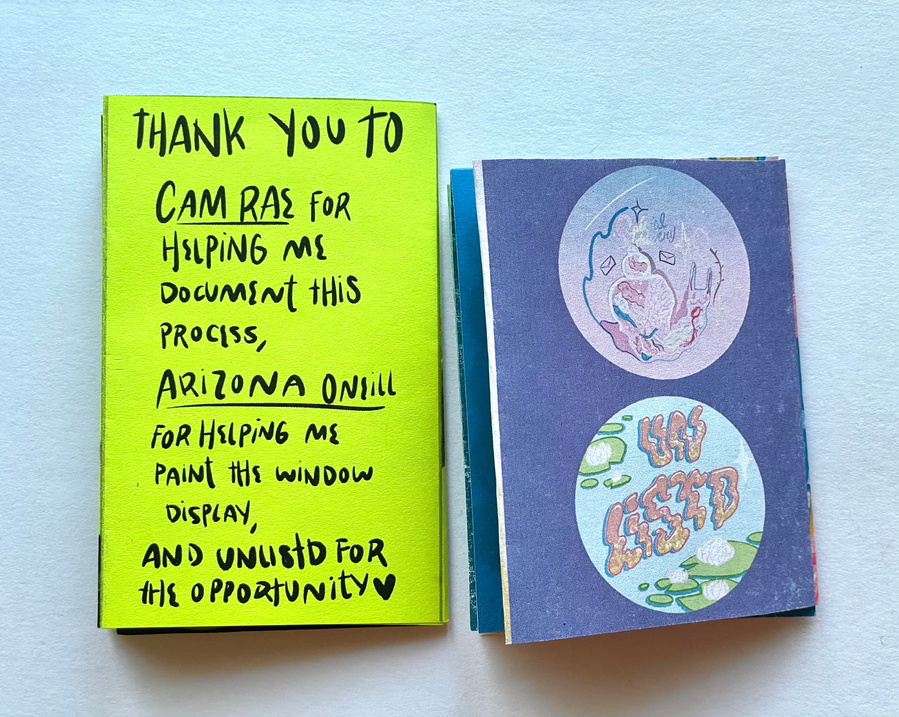 THANK YOU TO
CAM RAE FOR
HELPING ME
DOCUMENT THIS
PROCESS,
ARIZONA ONEILL
FOR HELPING ME
PAINT THE WINDOW
DISPLAY,
AND UNLISTD FOR
THE OPPORTUNITY♥
UN
LISTD